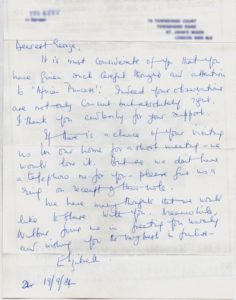 75 TOWNSHEND COURT
TOWNSHEND ROAD
ST. JOHN'S WOOD
LONDON NW8
Dearest George,
It is most considerate of you that you
have given such careful thought and attention
to "African Princess". Indeed your observations
are not only correct but absolutely right.
I thank you sincerely for your support.
If there is a chance of your visiting
us in our home for a short meeting - we
would love it. Because we don't have
a telephone no for you - please give us a
ring on receipt of this note.
We have many thoughts that we would
like to share with you. Meanwhile,
joins me in greeting you warmly
and wishing you the very best in
Elizabeth
19/9/84